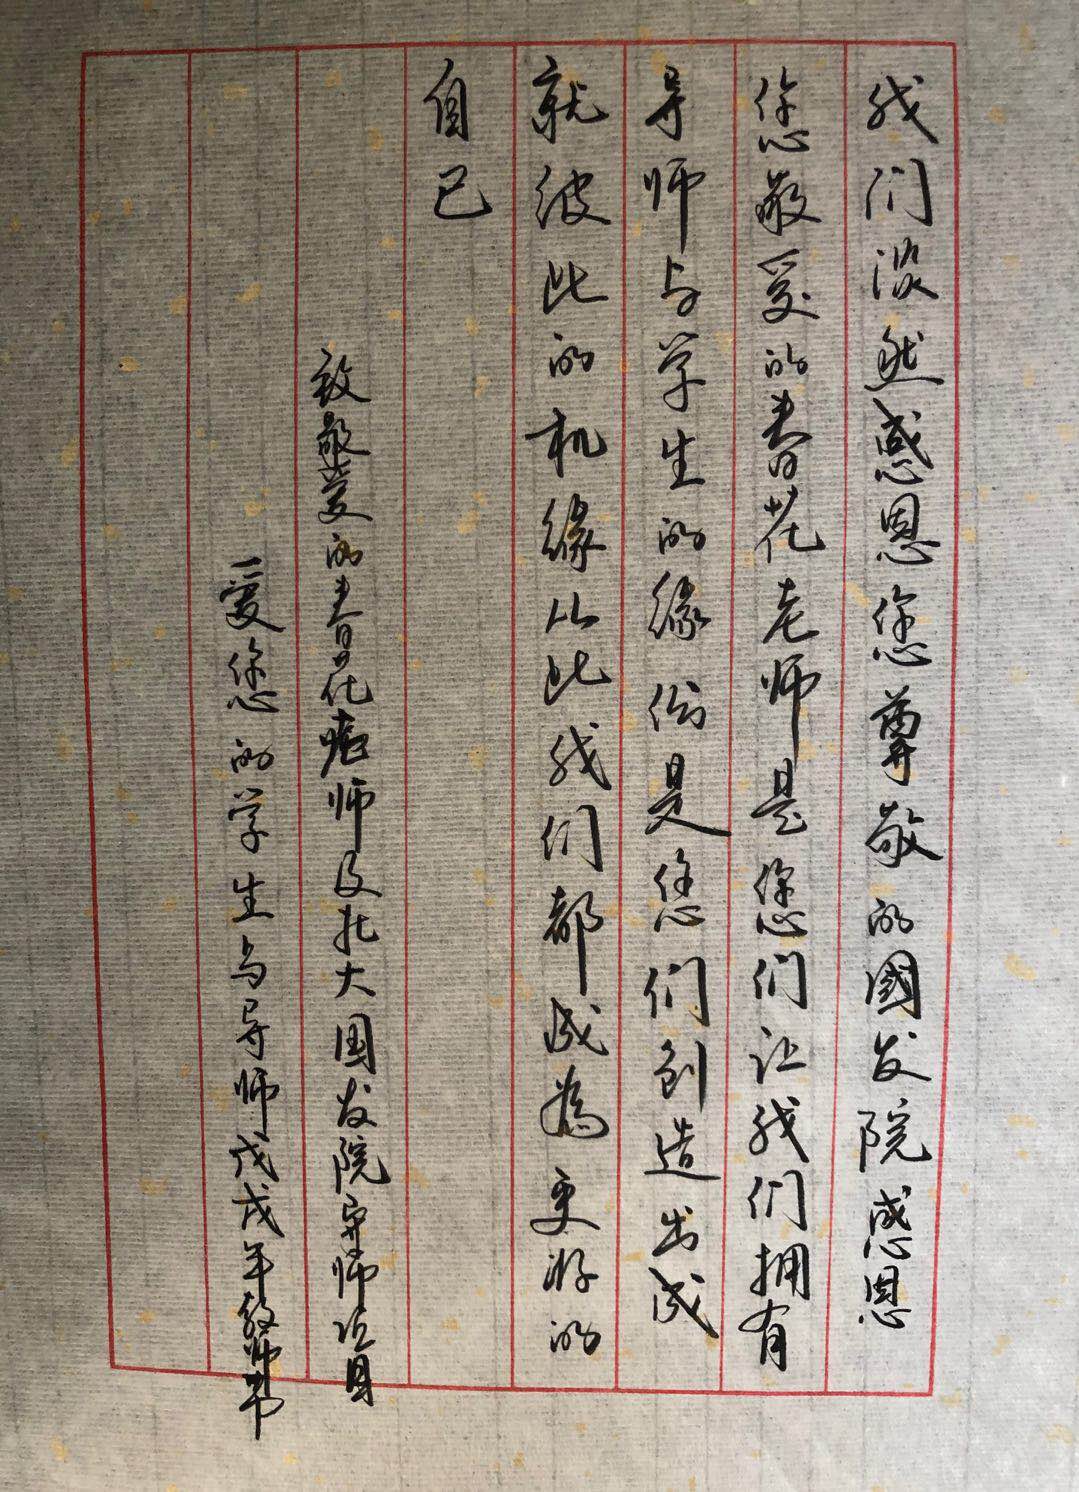 我们淡然感恩您尊敬的國发院感恩
您敬爱的春花老师是您们让我们拥有
导师与学生的缘份是您们创造出成
就彼此的机缘从此我们都成为更好的
自己
致敬爱的春花老师及北大国发院导师项目
爱您的学生与导师戊戌年教师节